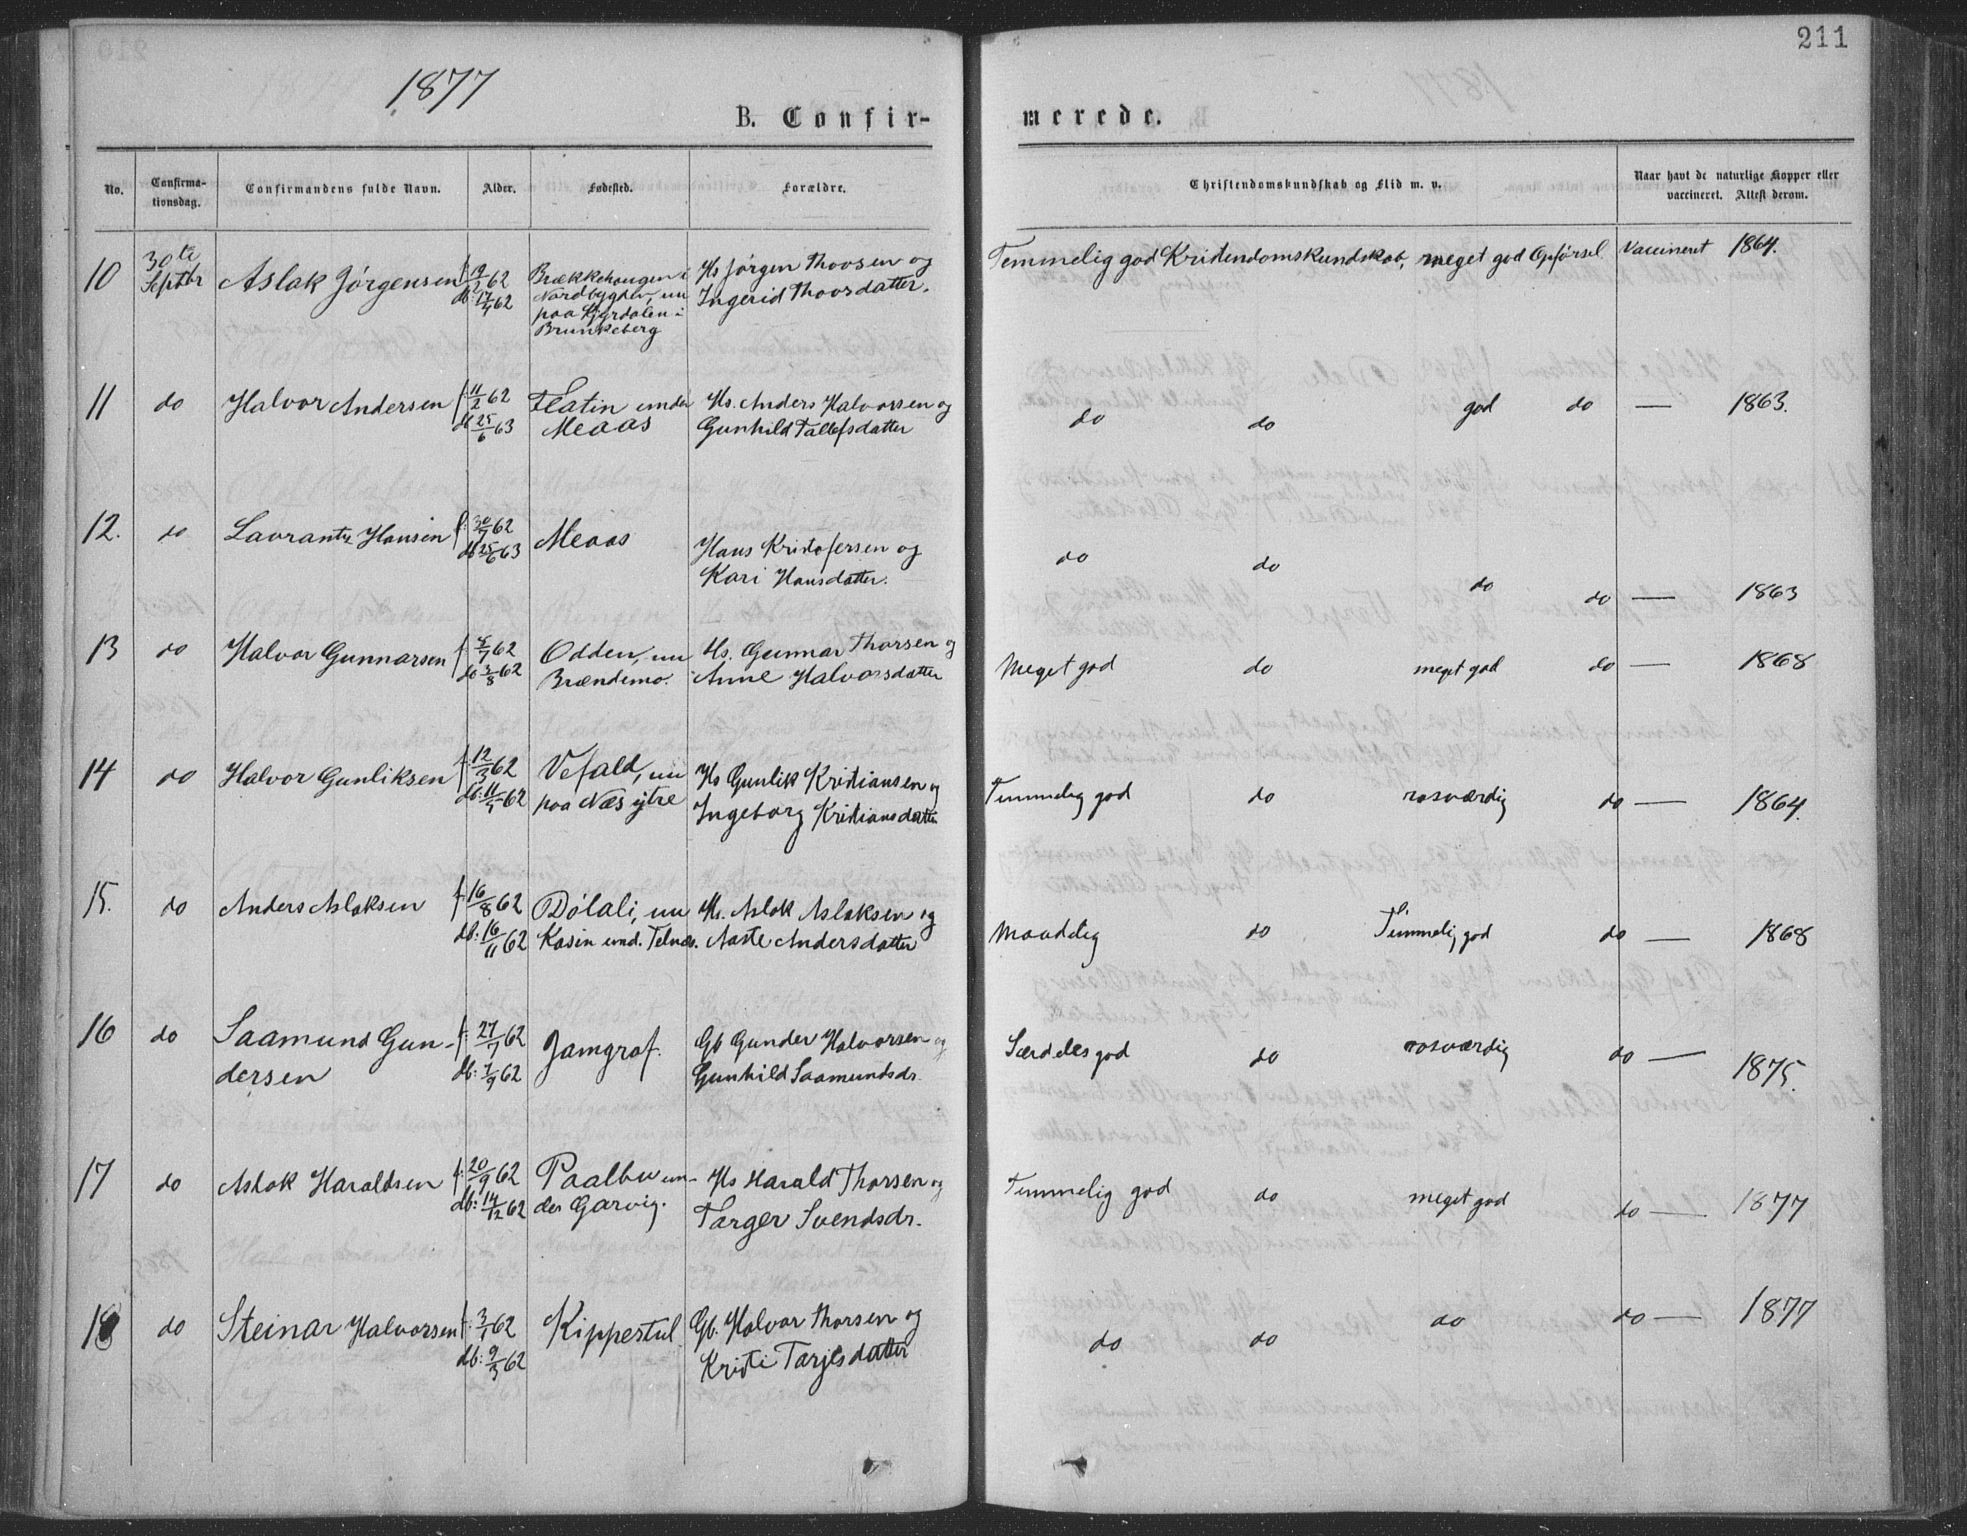 211
1877
B. Confir-
merede.
No.
Confirma-
tionsdag.
Confirmandens fulde Navn.
Alder.
Fødested.
Forældre.
Christendomskundskab og Flid m. v.
Naar havt de naturlige Kopper eller
vaccineret. Attest derom.
10 30te Septbr Aslak Jørgensen
62
62
Brækkehaugen i
Nordbygden, nu
paa Kjyrdalen i
Brunkeberg
Hs Jørgen Thovsen og
Ingerid Thovsdatter.
Temmelig god Kristendomskundskab, meget god Opførsel Vaccineret 1864.
11 do Halvor Andersen
f. 11/2 62
db 25/6 63
Flatin under
Meaas
Hs. Anders Halvorsen og
Gunhild Tallefsdatter
do do god do — 1863.
12. do Lavrantz Hansen
f: 30/7 62
db 25/6 63
Meaas
Hans Kristofersen og
Kari Hansdatter.
do do do do — 1863
13 do Halvor Gunnarsen
f. 8/7 62
db 3/8 62
Odden, nu
Brændemo.
Hs. Gunnar Thorsen og
Anne Halvorsdatter
Meget god do meget god do — 1868
14 do Halvor Gunliksen
f. 12/3 62
db: 11/5 62
Vefald, nu
paa Næs ytre
Hs Gunlik Kristiansen og
Ingeborg Kristiansdatter
Temmelig god do rosværdig do — 1864.
15. do Anders Aslaksen
f. 16/8 62
db: 16/11 62
Dølali, nu
Kasin und. Telnæs.
Hs. Aslak Aslaksen og
Aaste Andersdatter
Maadelig do Temmelig god do — 1868
16 do Saamund Gun-
dersen
f: 27/7 62
db: 7/9 62
Jamgraf.
Gb Gunder Halvorsen og
Gunhild Saamundsdr.
Særdeles god do rosværdig do — 1875.
17 do Aslak Haraldsen
f: 20/9 62
db: 14/12 62
Paalbu un-
der Garvig.
Hs Harald Thorsen og
Targer Svendsdr.
Temmelig god do meget god do — 1877
18 do Steinar Halvorsen
f. 3/1 62
db: 9/3 62
Kippestul
Gb. Halvor Thorsen og
Kristi Tarjesdatter
do do do do — 1877